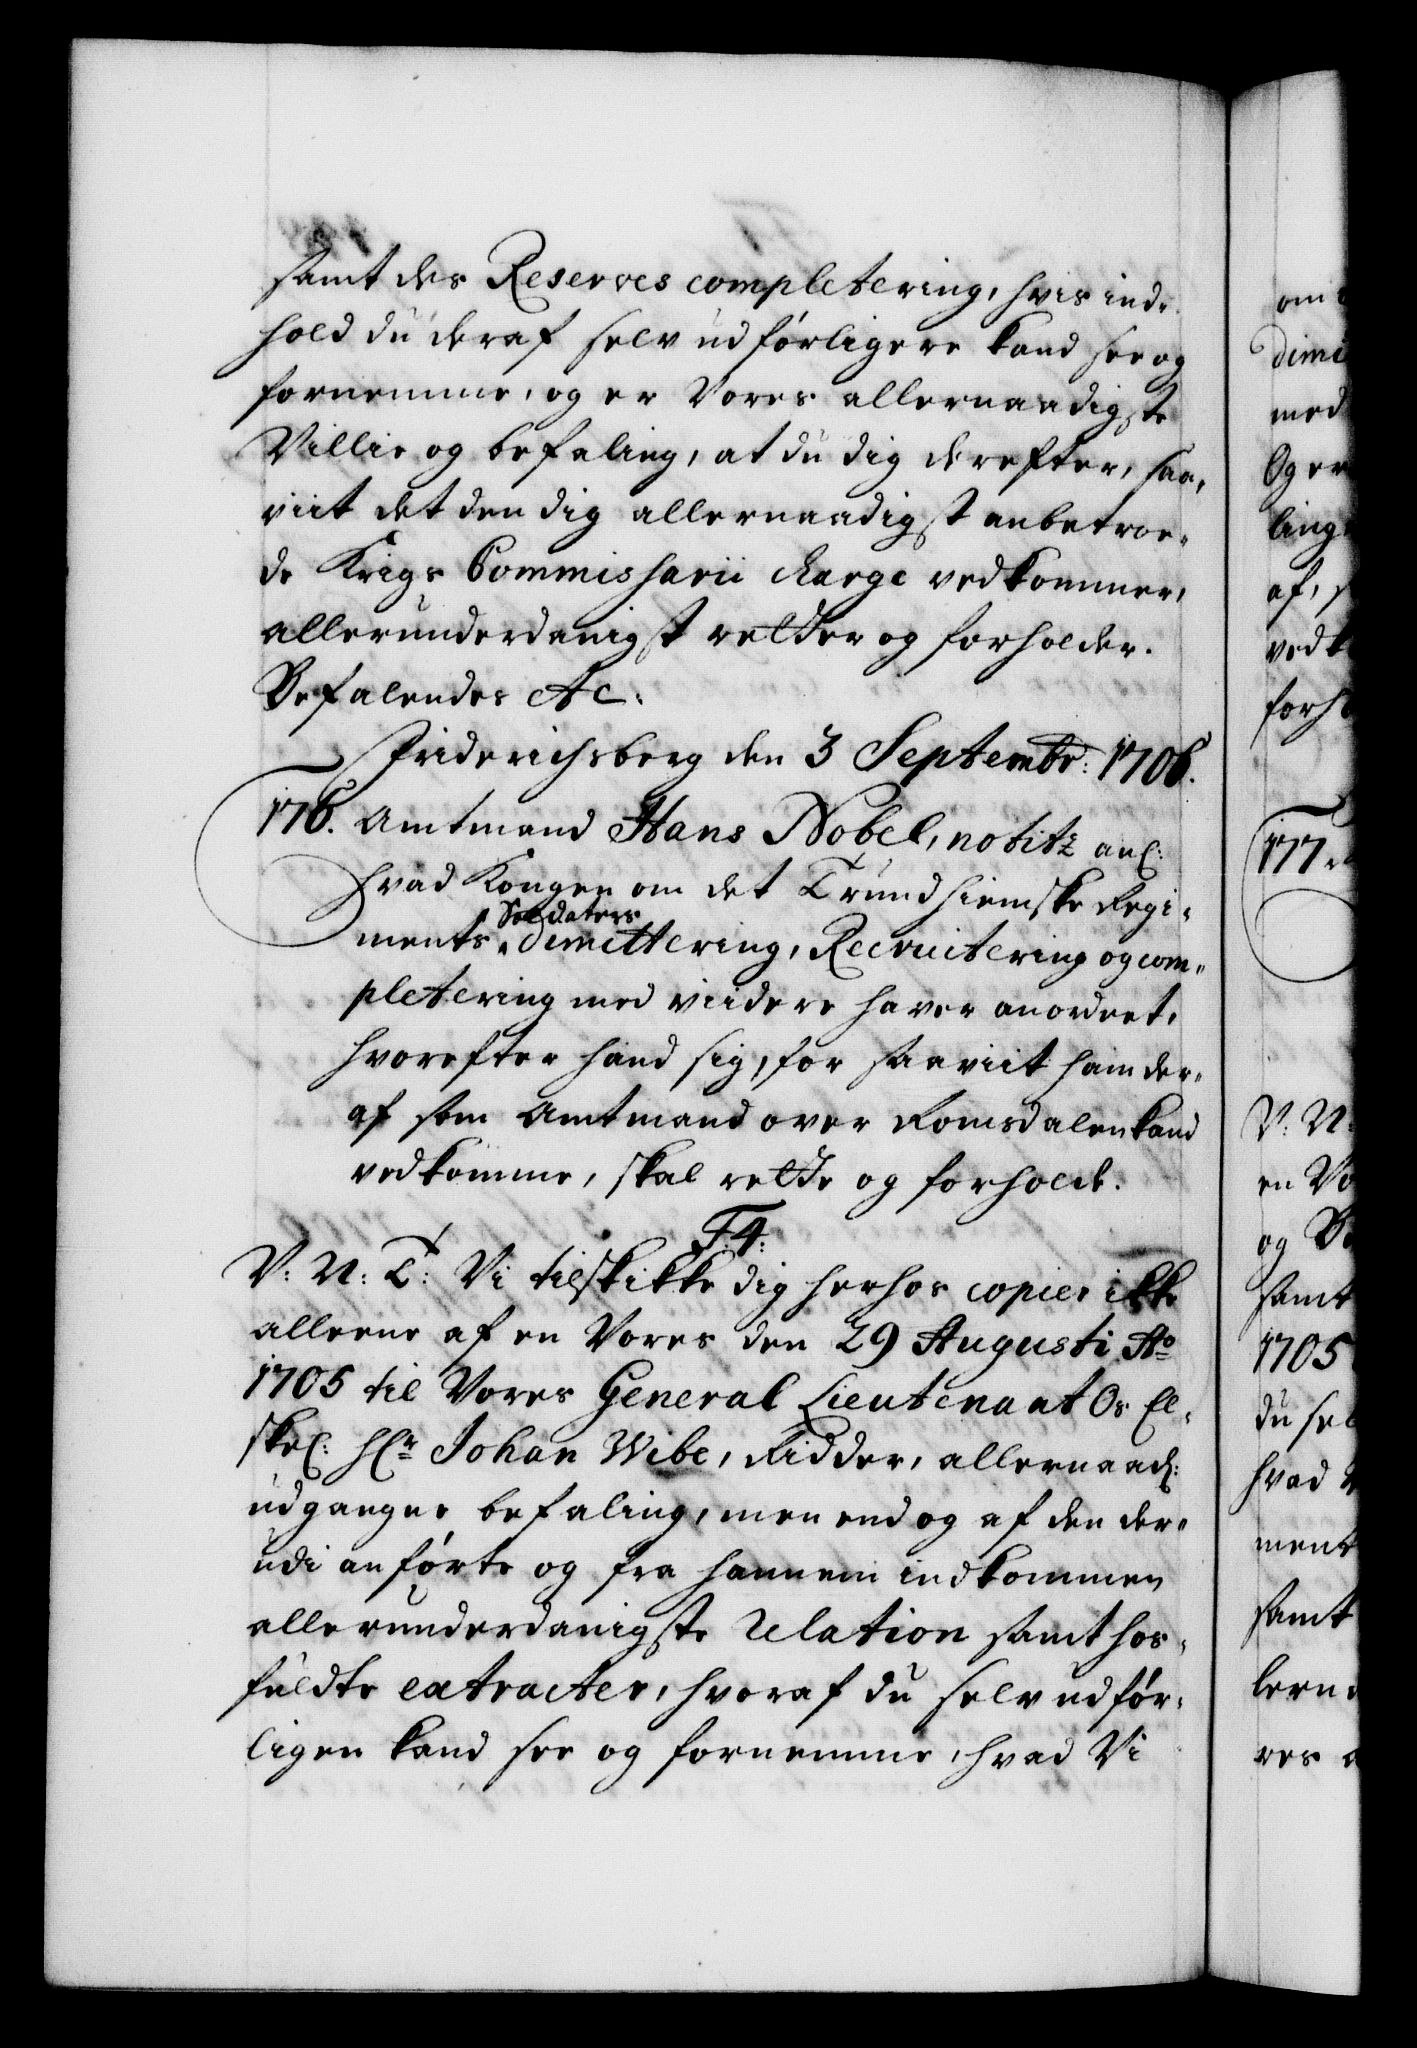 samt des Reserves completering, hvis ind-
hold du deraf selv udførligere kand see og
fornemme, og er Vores allernaadigste
Villie og befaling, at du dig derefter, saa-
viit det den dig allernaadigst anbetroe-
de Krigs Commissarii charge vedkommer,
allerunderdanigst retter og forholder.
Befalendes etc:
Friderichsberg den 3 Septembr: 1706.
176. Amtmand Hans Nobel, notitz anl:
hvad Kongen om det Trundhiemske Regi-
ments Soldaters dimittering, Recruitering og com-
pletering med viidere haver anordnet,
hvorefter hand sig, for saaviit ham der-
af som Amtmand over Romsdalen kand
vedkomme, skal rette og forholde.
F: 4:
V: N: T: Vi tilskikke dig herhos copier ikke
alleene af en Vores den 29 Augusti Ao
1705 til Vores General Lieutenant Os El-
skel: Hr Johan Wibe, Ridder, allernaad:
udgangne befaling, men endog af den der-
udi anførte og fra hannem indkommen
allerunderdanigste Relation samt hos-
fuldte extracter, hvoraf du selv udfør-
ligen kand see og fornemme, hvad Vi
om
dimi
med
Og er
ling
af, s
vedk
forho
177.
V: N:
en Vo
og B
samt
1705
du sel
hvad
ment
samt
lern
res a